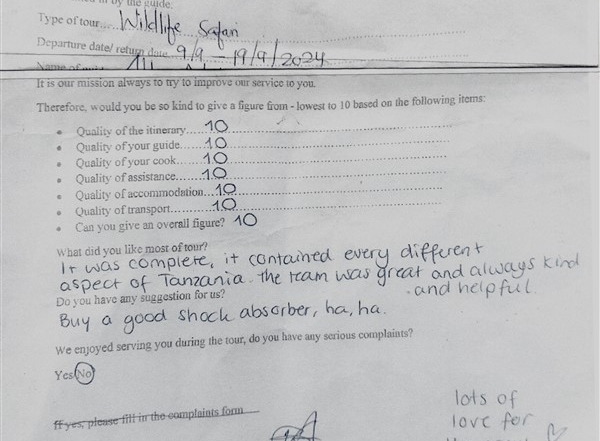 by the guide:
Type of tour..... Wildlife Safari
Departure date/ return date 9/9 - 19/9/2024
Name of
It is our mission always to try to improve our service to you.
Therefore, would you be so kind to give a figure from - lowest to 10 based on the following items:
• Quality of the itinerary......10
• Quality of your guide......10
• Quality of your cook......10
• Quality of assistance......10
• Quality of accommodation...10
• Quality of transport.........10
• Can you give an overall figure? 10
What did you like most of tour?
It was complete, it contained every different
aspect of Tanzania. The team was great and always kind
and helpful.
Do you have any suggestion for us?
Buy a good shock absorber, ha, ha.
We enjoyed serving you during the tour, do you have any serious complaints?
Yes/No
If yes, please fill in the complaints form
lots of
love for